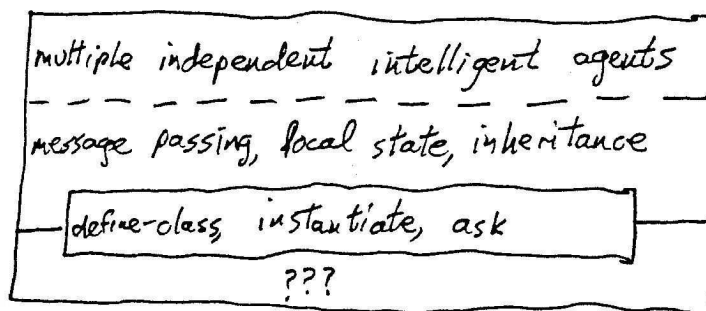 multiple independent intelligent agents
message passing, local state, inheritance
define-class, instantiate, ask
???